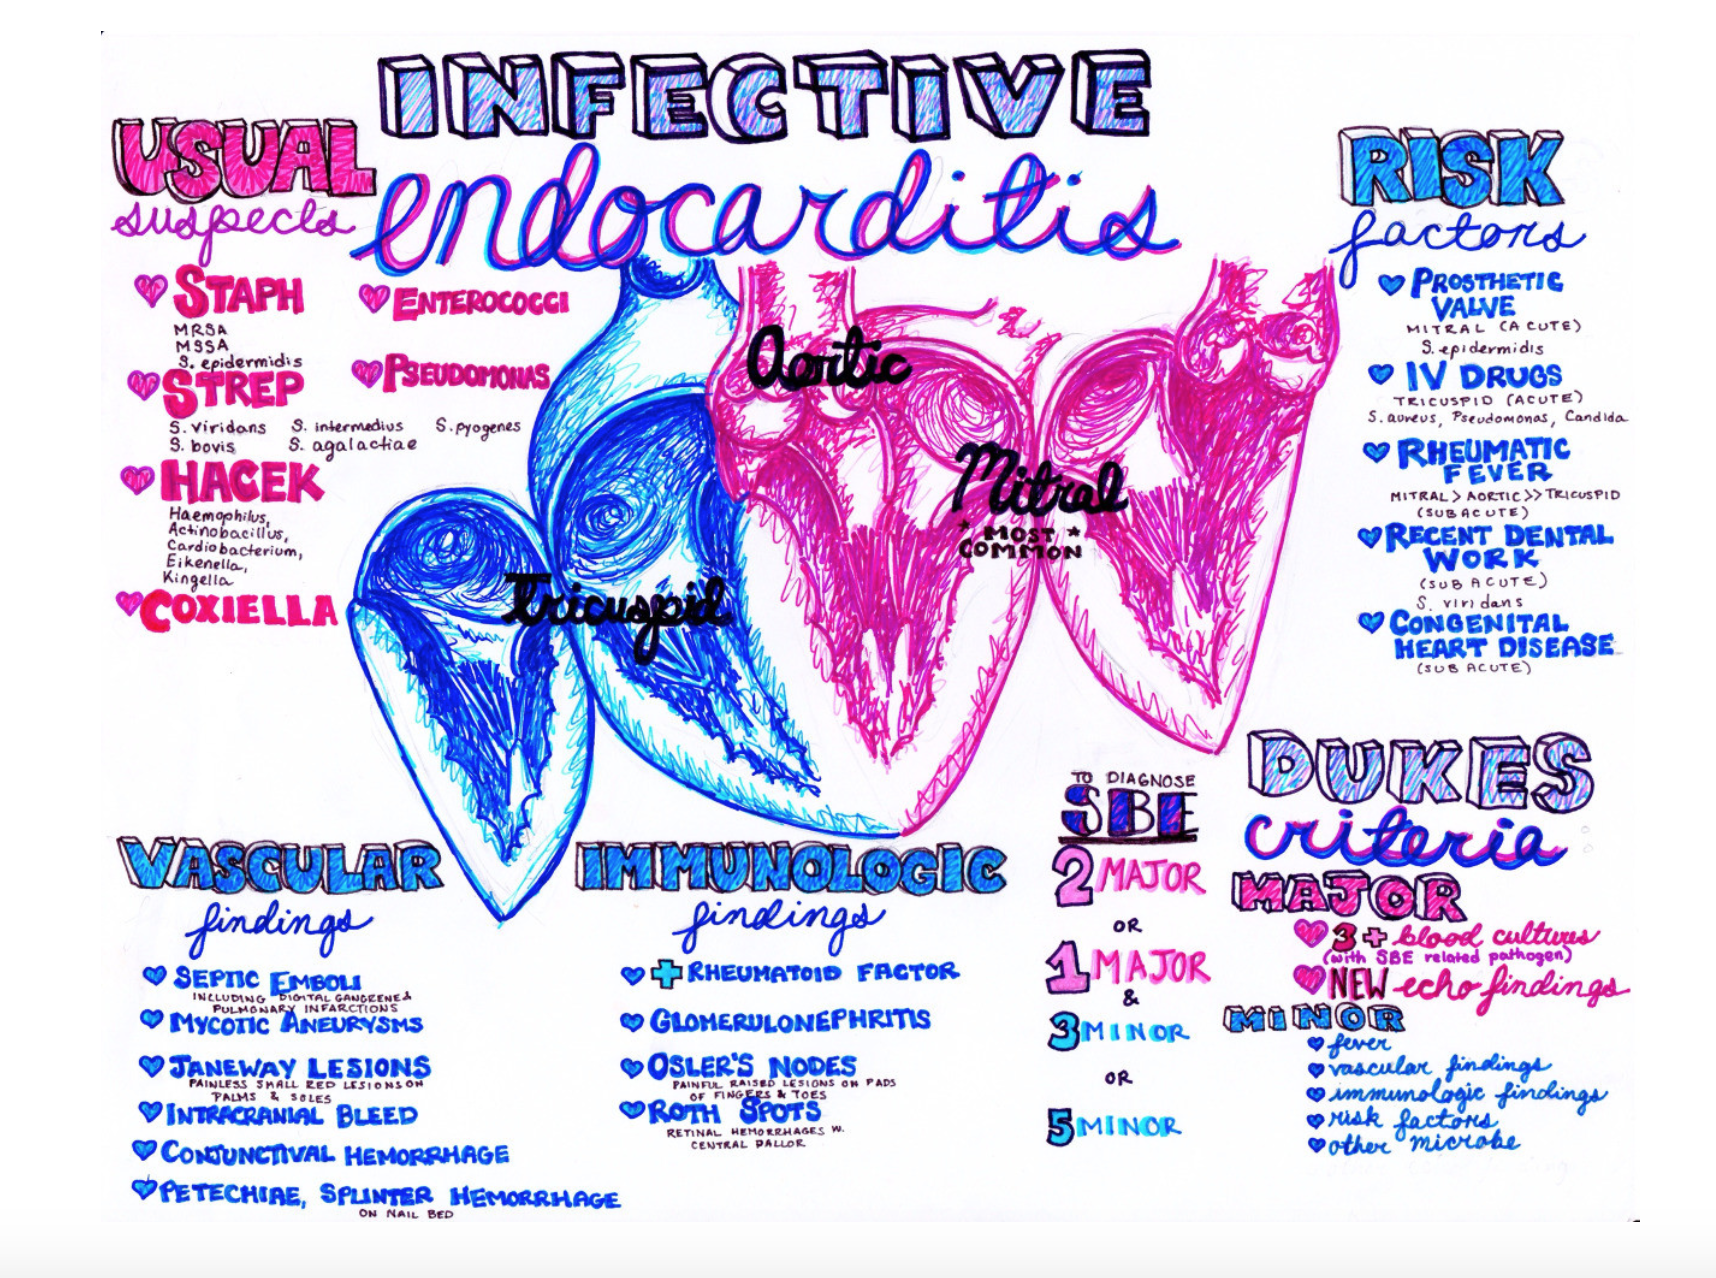 INFECTIVE
endocarditis
USUAL
suspects
STAPH
MRSA
MSSA
S. epidermidis
STREP
S. viridans S. intermedius S. pyogenes
S. bovis S. agalactiae
HACEK
Haemophilus,
Actinobacillus,
Cardiobacterium,
Eikenella,
Kingella
COXIELLA
ENTEROCOCCI
PSEUDOMONAS
Aortic
Mitral
* MOST *
COMMON
Tricuspid
RISK
factors
PROSTHETIC
VALVE
MITRAL (ACUTE)
S. epidermidis
IV DRUGS
TRICUSPID (ACUTE)
S. aureus, Pseudomonas, Candida
RHEUMATIC
FEVER
MITRAL > AORTIC >> TRICUSPID
(SUBACUTE)
RECENT DENTAL
WORK
(SUBACUTE)
S. viridans
CONGENITAL
HEART DISEASE
(SUBACUTE)
VASCULAR
findings
SEPTIC EMBOLI
INCLUDING DIGITAL GANGRENE &
PULMONARY INFARCTIONS
MYCOTIC ANEURYSMS
JANEWAY LESIONS
PAINLESS SMALL RED LESIONS ON
PALMS & SOLES
INTRACRANIAL BLEED
CONJUNCTIVAL HEMORRHAGE
PETECHIAE, SPLINTER HEMORRHAGE
ON NAIL BED
IMMUNOLOGIC
findings
+ RHEUMATOID FACTOR
GLOMERULONEPHRITIS
OSLER'S NODES
PAINFUL RAISED LESIONS ON PADS
OF FINGERS & TOES
ROTH SPOTS
RETINAL HEMORRHAGES W.
CENTRAL PALLOR
TO DIAGNOSE
SBE
2 MAJOR
OR
1 MAJOR
&
3 MINOR
OR
5 MINOR
DUKES
criteria
MAJOR
3+ blood cultures
(with SBE related pathogen)
NEW echo findings
MINOR
fever
vascular findings
immunologic findings
risk factors
other microbe